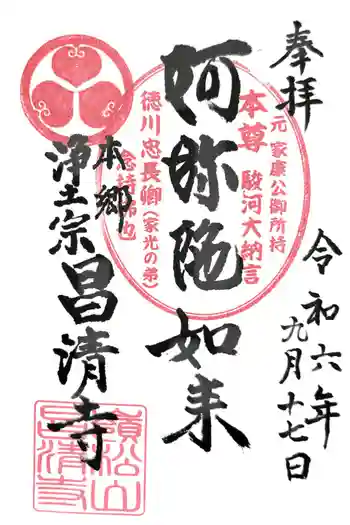 奉拝
令和六年
九月十七日
元 家康公御所持
本尊 駿河大納言
阿弥陀如来
徳川忠長卿(家光の弟)
念持佛也
本郷
浄土宗 昌清寺
嶺松山
昌清寺